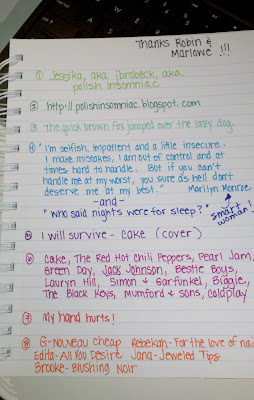 Thanks Robin &
Marlowe !!!
① Jessika, aka jbrobeck, aka
polish insomniac
② http://polishinsomniac.blogspot.com
③ The quick brown fox jumped over the lazy dog.
④ "I'm selfish, impatient and a little insecure.
I make mistakes, I am out of control and at
times hard to handle. But if you can't
handle me at my worst, you sure as hell don't
deserve me at my best." Marilyn Monroe
-and-
"Who said nights were for sleep?" smart woman!
⑤ I will survive - cake (cover)
⑥ Cake, The Red Hot Chili Peppers, Pearl Jam,
Green Day, Jack Johnson, Bestie Boys,
Lauryn Hill, Simon & Garfunkel, Biggie,
The Black Keys, Mumford & Sons, Coldplay
⑦ My hand hurts!
⑧ G-Nouveau cheap Rebekah-For the love of nai
Edita-All You Desire Jana-Jeweled Tips
Brooke-Blushing Noir